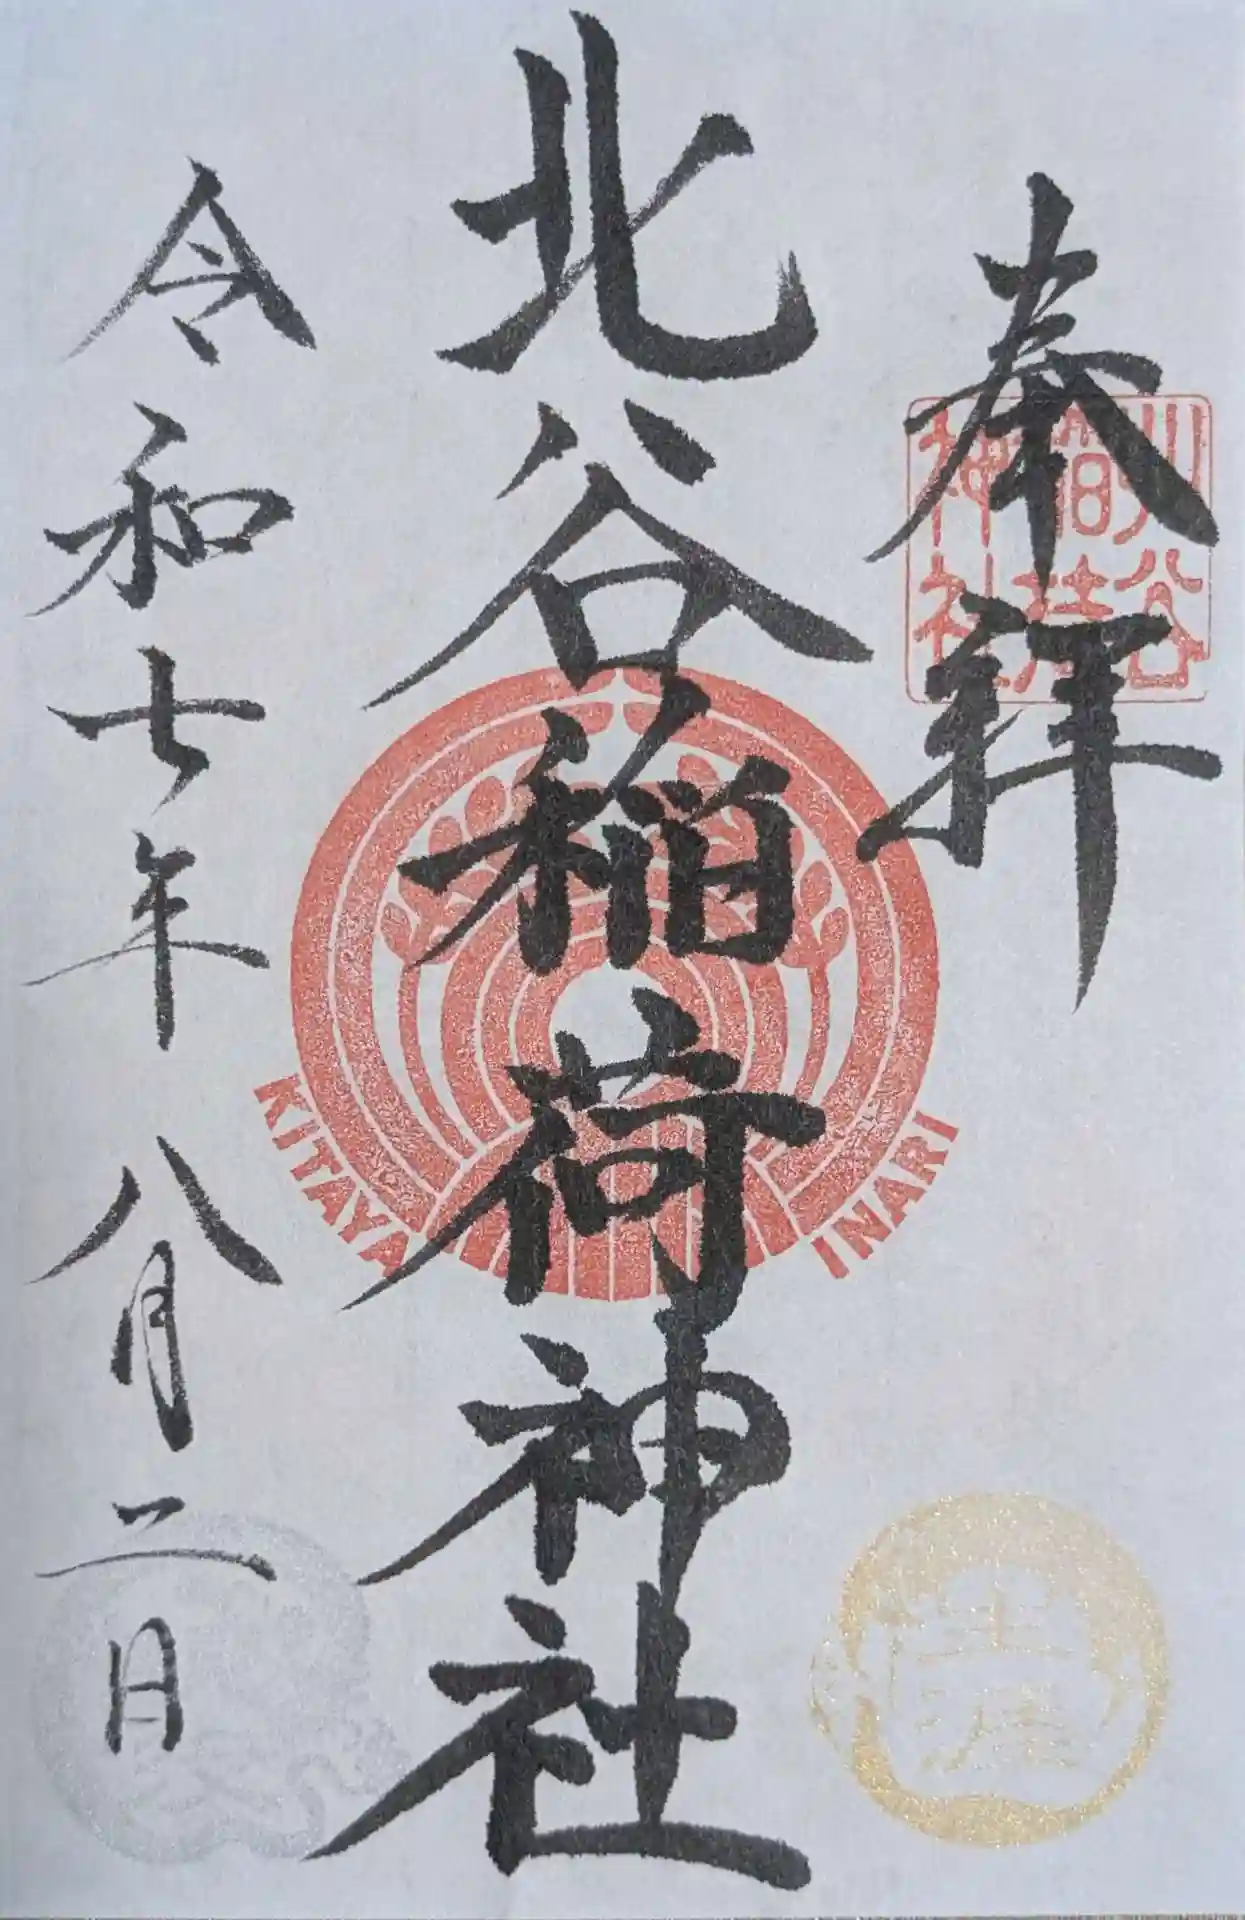 奉拝
北谷稲荷神社
北谷稲荷神社
KITAYA INARI
令和七年八月二日